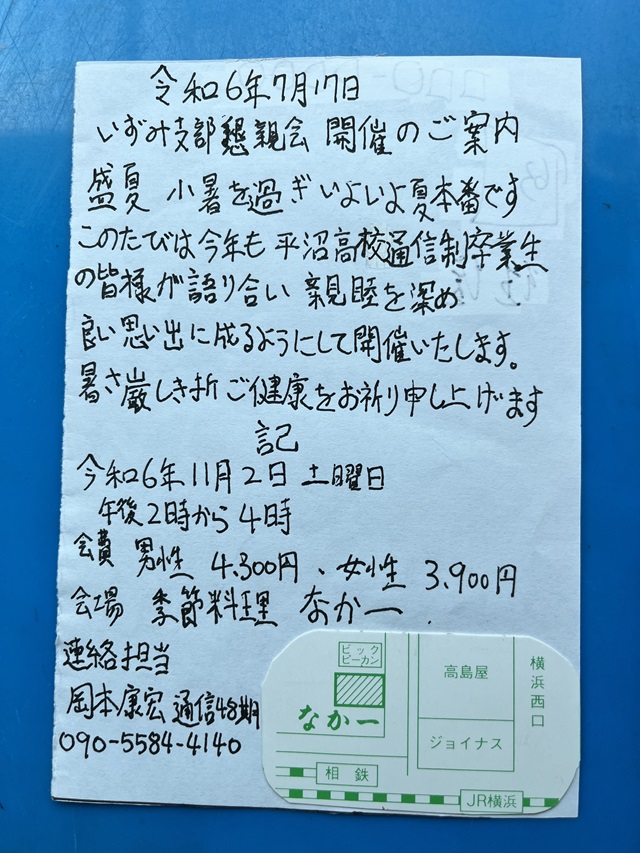 令和6年7月17日
いずみ支部懇親会 開催のご案内
盛夏 小暑を過ぎいよいよ夏本番です
このたびは今年も平沼高校通信制卒業生
の皆様が語り合い 親睦を深め
良い思い出に成るようにして開催いたします。
暑さ厳しき折ご健康をお祈り申し上げます
記
令和6年11月2日 土曜日
午後2時から4時
会費 男性 4.300円、女性 3.900円
会場 季節料理 なか一
連絡担当
岡本康宏 通信48期
090-5584-4140
ビック
ビーカン
なか一
高島屋
ジョイナス
横浜西口
相鉄
JR横浜